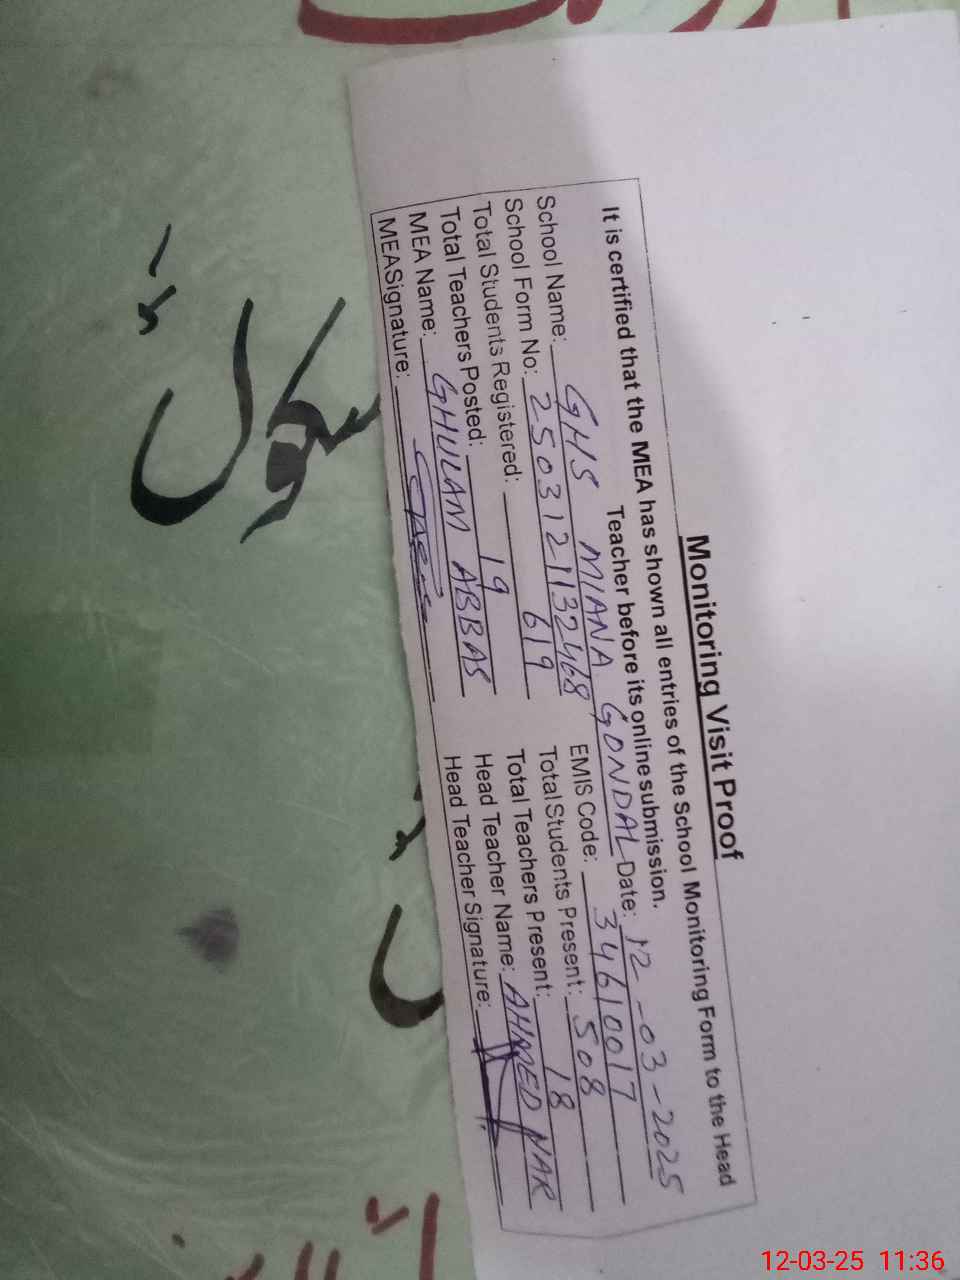 Monitoring Visit Proof
It is certified that the MEA has shown all entries of the School Monitoring Form to the Head
Teacher before its online submission.
School Name: GHS MIANA GONDAL Date: 12-03-2025
School Form No: 2503121132468 EMIS Code: 34610017
Total Students Registered: 619 Total Students Present: 508
Total Teachers Posted: 19 Total Teachers Present: 18
MEA Name: GHULAM ABBAS Head Teacher Name: AHMED NAR
MEA Signature: Head Teacher Signature:
12-03-25 11:36